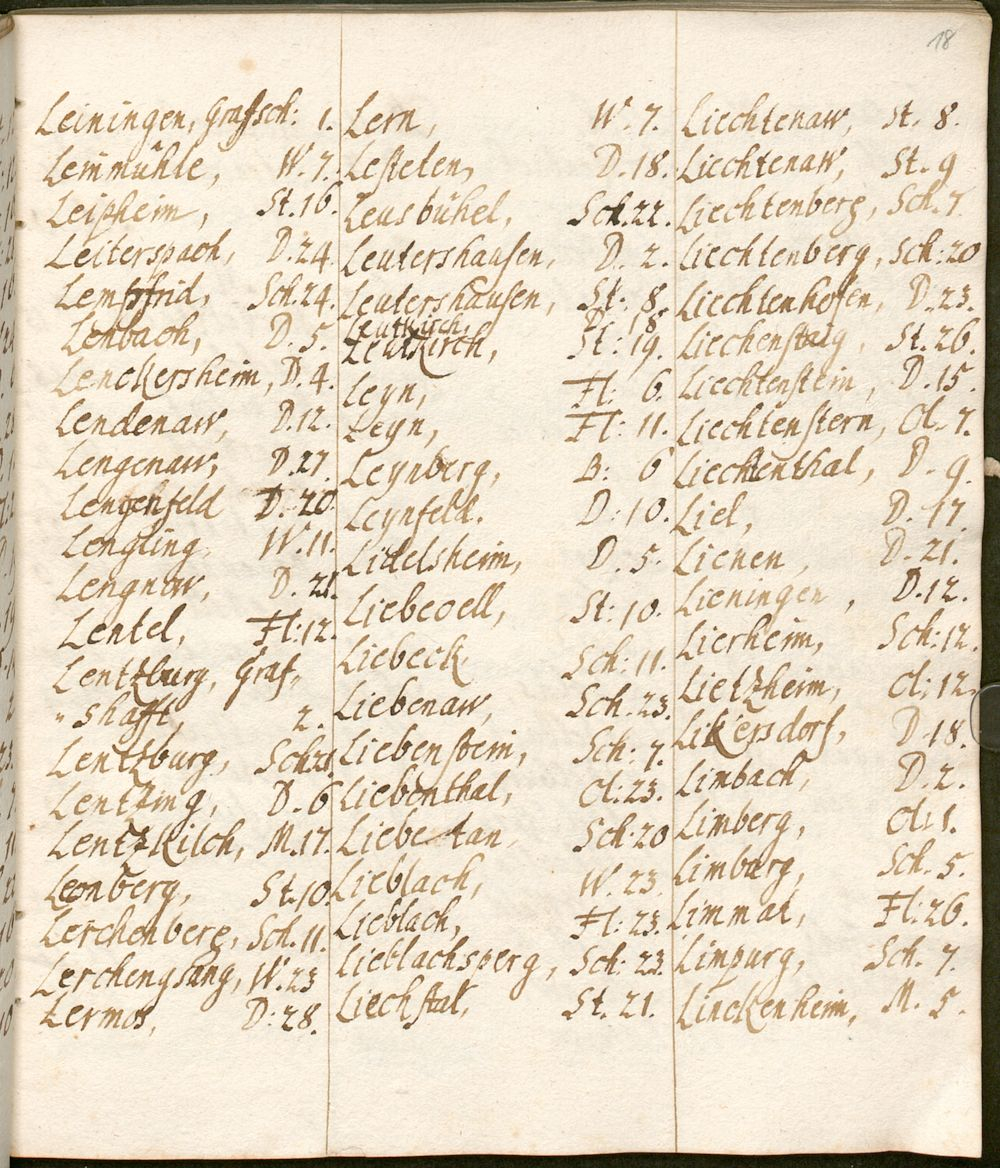 18
Leiningen, Grafsch: 1.
Leimmühle, W. 7.
Leipheim, St. 16.
Leiterspach, D. 24.
Lempfrid, Sch. 24.
Lenbach, D. 5.
Lenckersheim, D. 4.
Lendenaw, D. 12.
Lengenaw, D. 27.
Lengenfeld D. 20
Lengling, W. 11.
Lengnow, D. 21.
Lentel, Fl: 12.
Lentzburg, Graf„
„ shafft, 2.
Lentzburg, Sch 21.
Lentzing, D. 6
Lentzkilch, M. 17.
Leonberg, St. 10
Lerchenberg, Sch. 11.
Lerchengsang, W. 23
Lermos, D: 28.
Lern, W. 7.
Lesteten, D. 18.
Leusbühel, Sch. 22.
Leutershausen, D. 2.
Leutershausen, St. 8.
Leutkirch, D. 18.
Leutkirch, St: 19.
Leyn, Fl: 6.
Leyn, Fl: 11.
Leynberg, B: 6
Leynfeld. D: 10.
Lidelsheim, D. 5.
Liebecell, St: 10.
Liebeck Sch: 11.
Liebenaw, Sch. 23.
Liebenstein, Sch: 7.
Liebenthal, Cl: 23.
Liebetan, Sch: 20
Lieblach, W. 23.
Lieblach, Fl: 23.
Lieblachsperg, Sch: 23.
Liechstal, St. 21.
Liechtenaw, St. 8.
Liechtenaw, St. 9
Liechtenberg, Sch. 7.
Liechtenberg, Sch: 20
Liechtenhofen, D. 23.
Liechenstaig, St. 26.
Liechtenstein, D. 15.
Liechtenstern, Cl. 7.
Liechtenthal, D. 9.
Liel, D. 17.
Lienen, D. 21.
Lieningen, D. 12.
Lierheim, Sch: 12.
Lietzheim, Cl: 12.
Likersdorf, D. 18.
Limbach, D. 2.
Limberg, Cl: 1.
Limburg, Sch. 5.
Limmat, Fl: 26.
Limpurg, Sch. 7.
Linckenheim, M. 5.